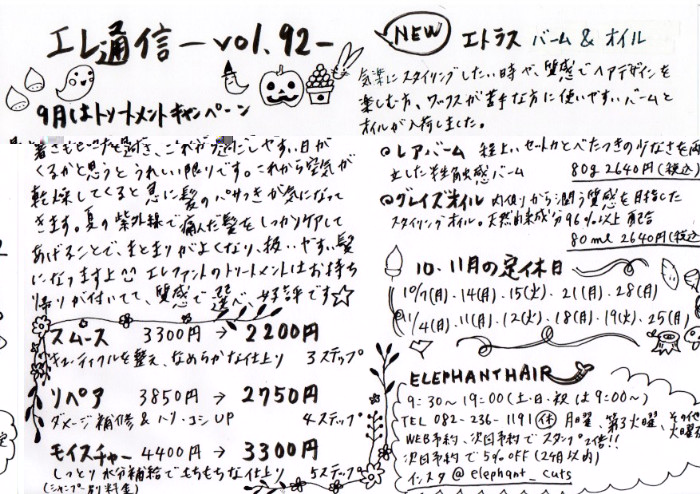 エレ通信 ―vol.92―
9月はトリートメントキャンペーン
くるかと思うとうれしい限りです。これから空気が
乾燥してくると急に髪のパサつきが気になって
きます。夏の紫外線で痛んだ髪をしっかりケアして
あげることで、まとまりがよくなり、扱いやすい髪
になりますよ エレファントのトリートメントはお持ち
帰りが付いてて、質感で選べ、好評です☆
スムース 3300円 → 2200円
キューティクルを整え、なめらかな仕上り 3ステップ
リペア 3850円 → 2750円
ダメージ補修 & ハリ・コシUP 4ステップ
モイスチャー 4400円 → 3300円
しっとり水分補給でもちもちな仕上り 5ステップ
(シャンプー別料金)
NEW エトラス バーム & オイル
気楽にスタイリングしたい時や、質感でヘアデザインを
楽しむ方、ワックスが苦手な方に使いやすいバームと
オイルが入荷しました。
レアバーム 程よいセット力とべたつきの少なさを両
立した新触感バーム 80g 2640円(税込)
グレイズオイル 内側から潤う質感を目指した
スタイリングオイル。天然由来成分96%以上配合
80ml 2640円(税込
10.11月の定休日
10/7(月).14(月).15(火).21(月).28(月)
11/4(月).11(月).12(火).18(月).19(火).25(月)
ELEPHANT HAIR
9:30~19:00(土・日・祝は9:00~)
TEL 082-236-1191 休 月曜、第3火曜、その他
火曜
WEB予約、次回予約でスタンプ2倍!!
次回予約で5%OFF(2ヶ月以内)
インスタ@elephant_cuts